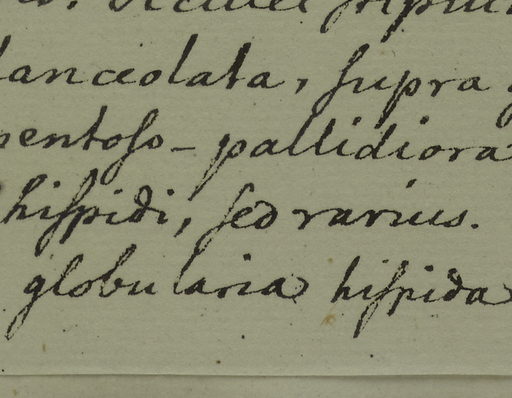 lanceolata, ſupra
mentoſo-pallidiora
hiſpidi, ſed rarius.
globularia hiſpida